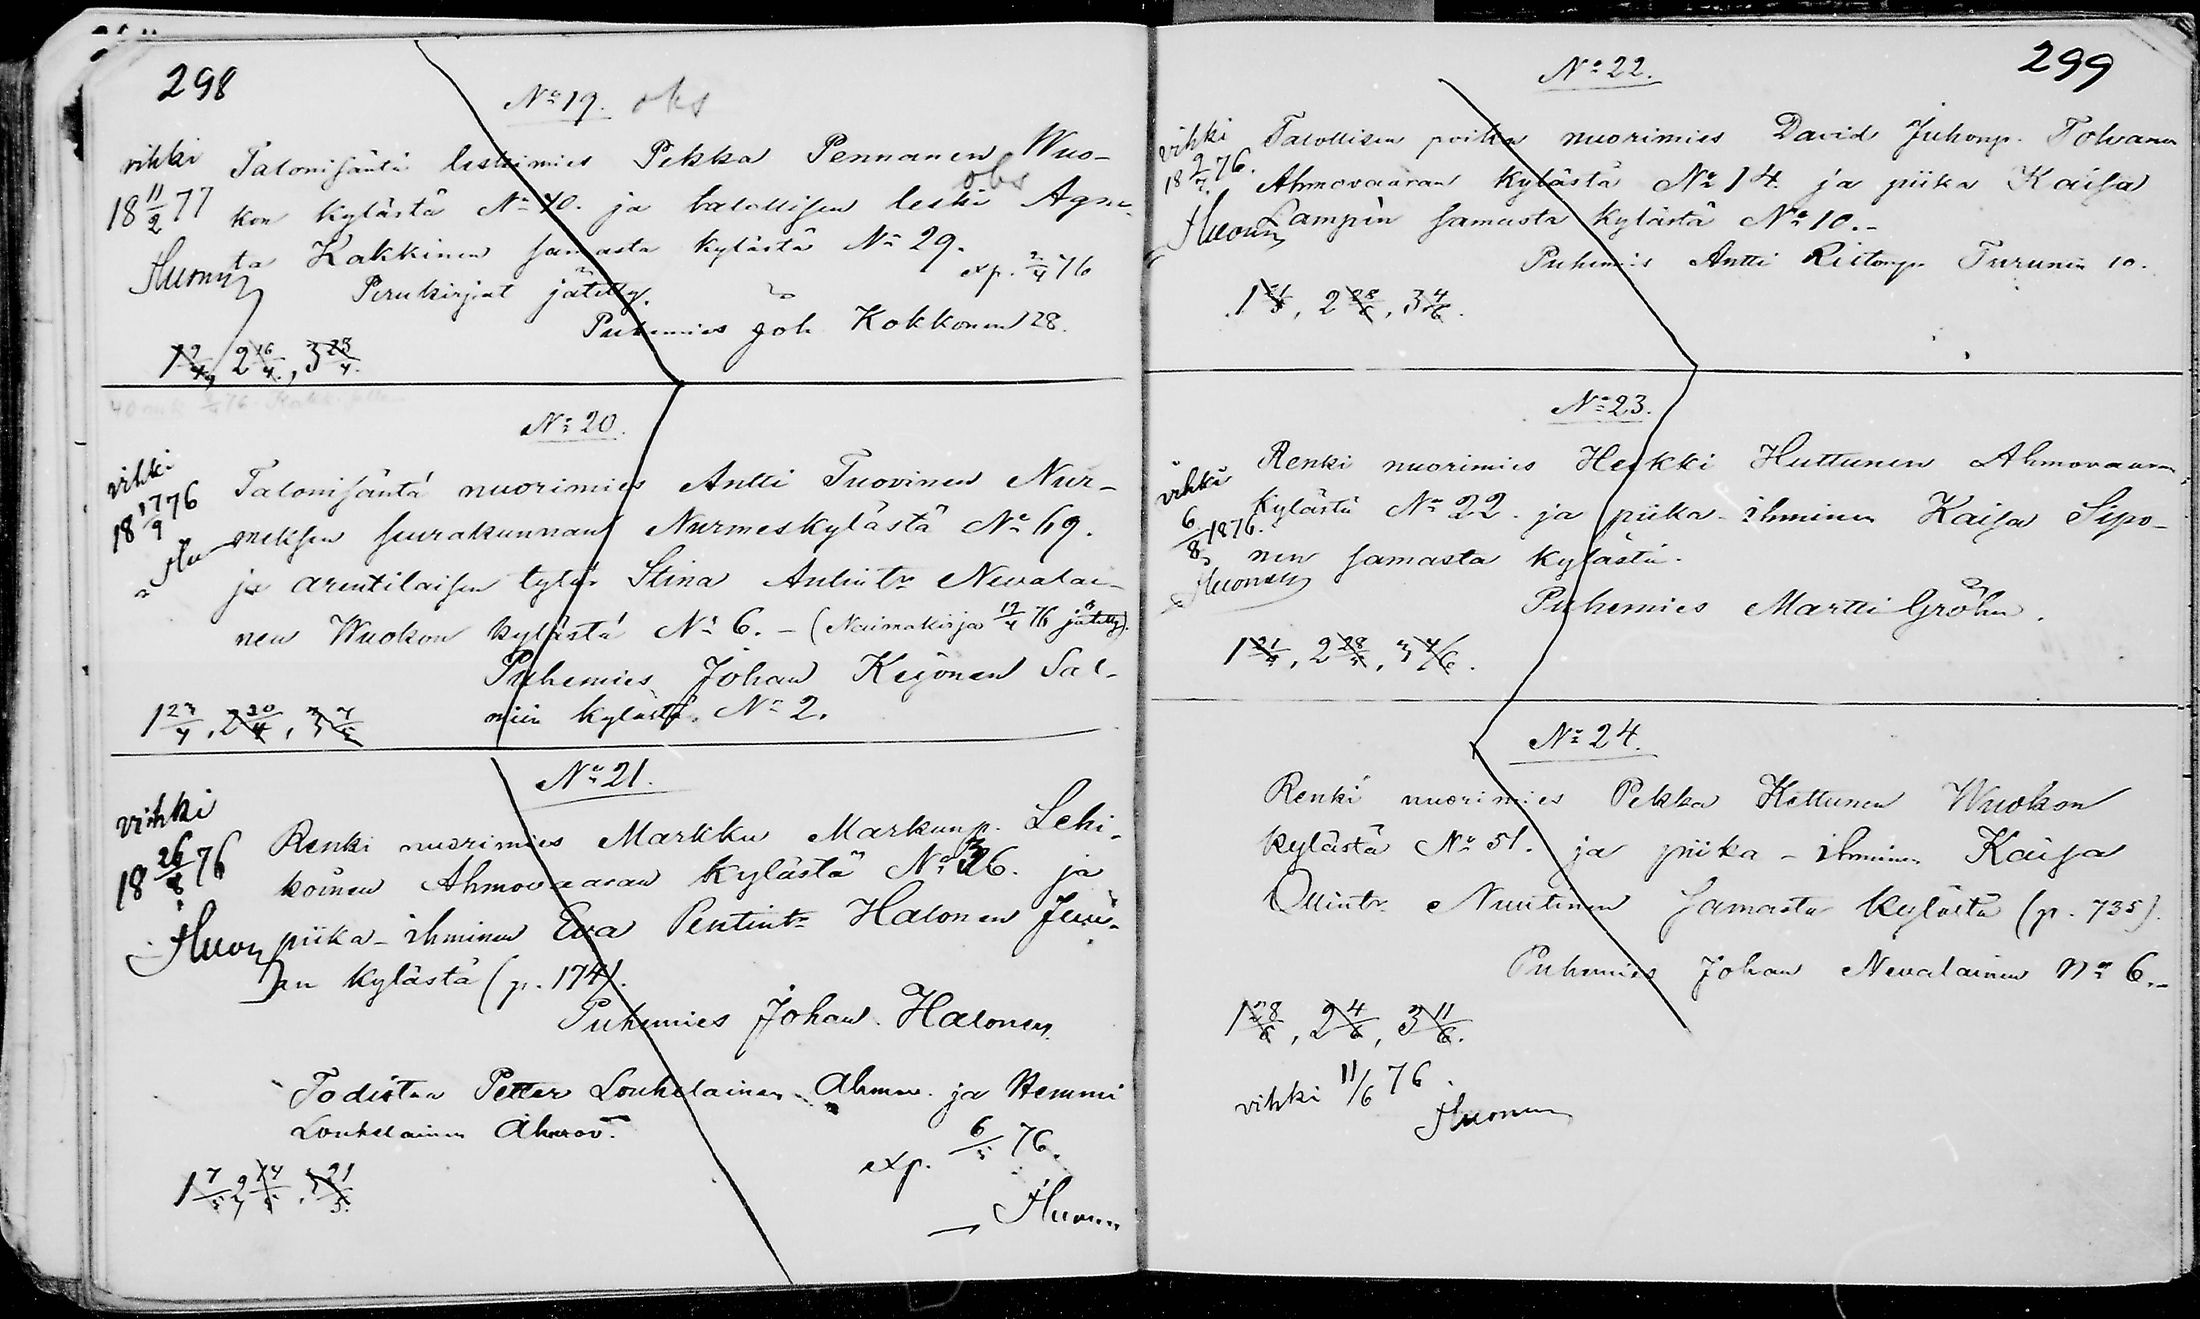 298
No 19. oks
vihki Talonisäntä leskimies Pekka Pennanen Wuo-
18 11/2 77 kon kylästä No 40. ja talollisen leski Agne-
ta Kakkinen samasta kylästä No 29.
exp. 2/4 76
Perukirjat jätetty.
Puhemies Joh Kokkonen 28.
1 9/4, 2 16/4, 3 23/4.
No 20.
vihki
18 17/9 76 Talonisäntä nuorimies Antti Tuovinen Nur-
meksen seurakunnan Nurmeskylästä No 69.
ja arentilaisen tytär Stina Antintr Nevalai-
nen Wuokon kylästä No 6. - (Naimakirja 17/4 76 jätetty).
Puhemies Johan Keijonen Sal-
min kylästä. No 2.
1 23/4, 2 30/4, 3 7/5
No 21.
vihki
18 26/8 76 Renki nuorimies Markku Markunp. Lehi-
koinen Ahmovaaran kylästä No 36. ja
piika-ihminen Eva Pentintr Halonen Juu-
an kylästä (p. 174).
Puhemies Johan Halonen
Todistaa Petter Louhelainen Ahmov. ja Hemmi
Louhelainen Ahmov.
exp. 6/5 76.
1 7/5, 2 14/5, 3 21/5
299
No 22.
vihki Talollisen poika nuorimies David Juhonp. Tolvanen
18 2/7 76. Ahmovaaran kylästä No 14. ja piika Kaisa
Lampin samasta kylästä No 10.-
Puhemies Antti Ristonp. Turunen 10.
1 21/5, 2 28/5, 3 4/6.
No 23.
vihki Renki nuorimies Heikki Huttunen Ahmovaaran
6/8 1876. kylästä No 22. ja piika-ihminen Kaisa Sipo-
nen samasta kylästä.
Puhemies Martti Gröhn.
1 21/5, 2 28/5, 3 4/6.
No 24.
Renki nuorimies Pekka Kettunen Wuokon
kylästä No 51. ja piika-ihminen Kaisa
Ollintr Nuutinen samasta kylästä (p. 735).
Puhemies Johan Nevalainen No 6.-
1 28/5, 2 4/6, 3 11/6.
vihki 11/6 76.